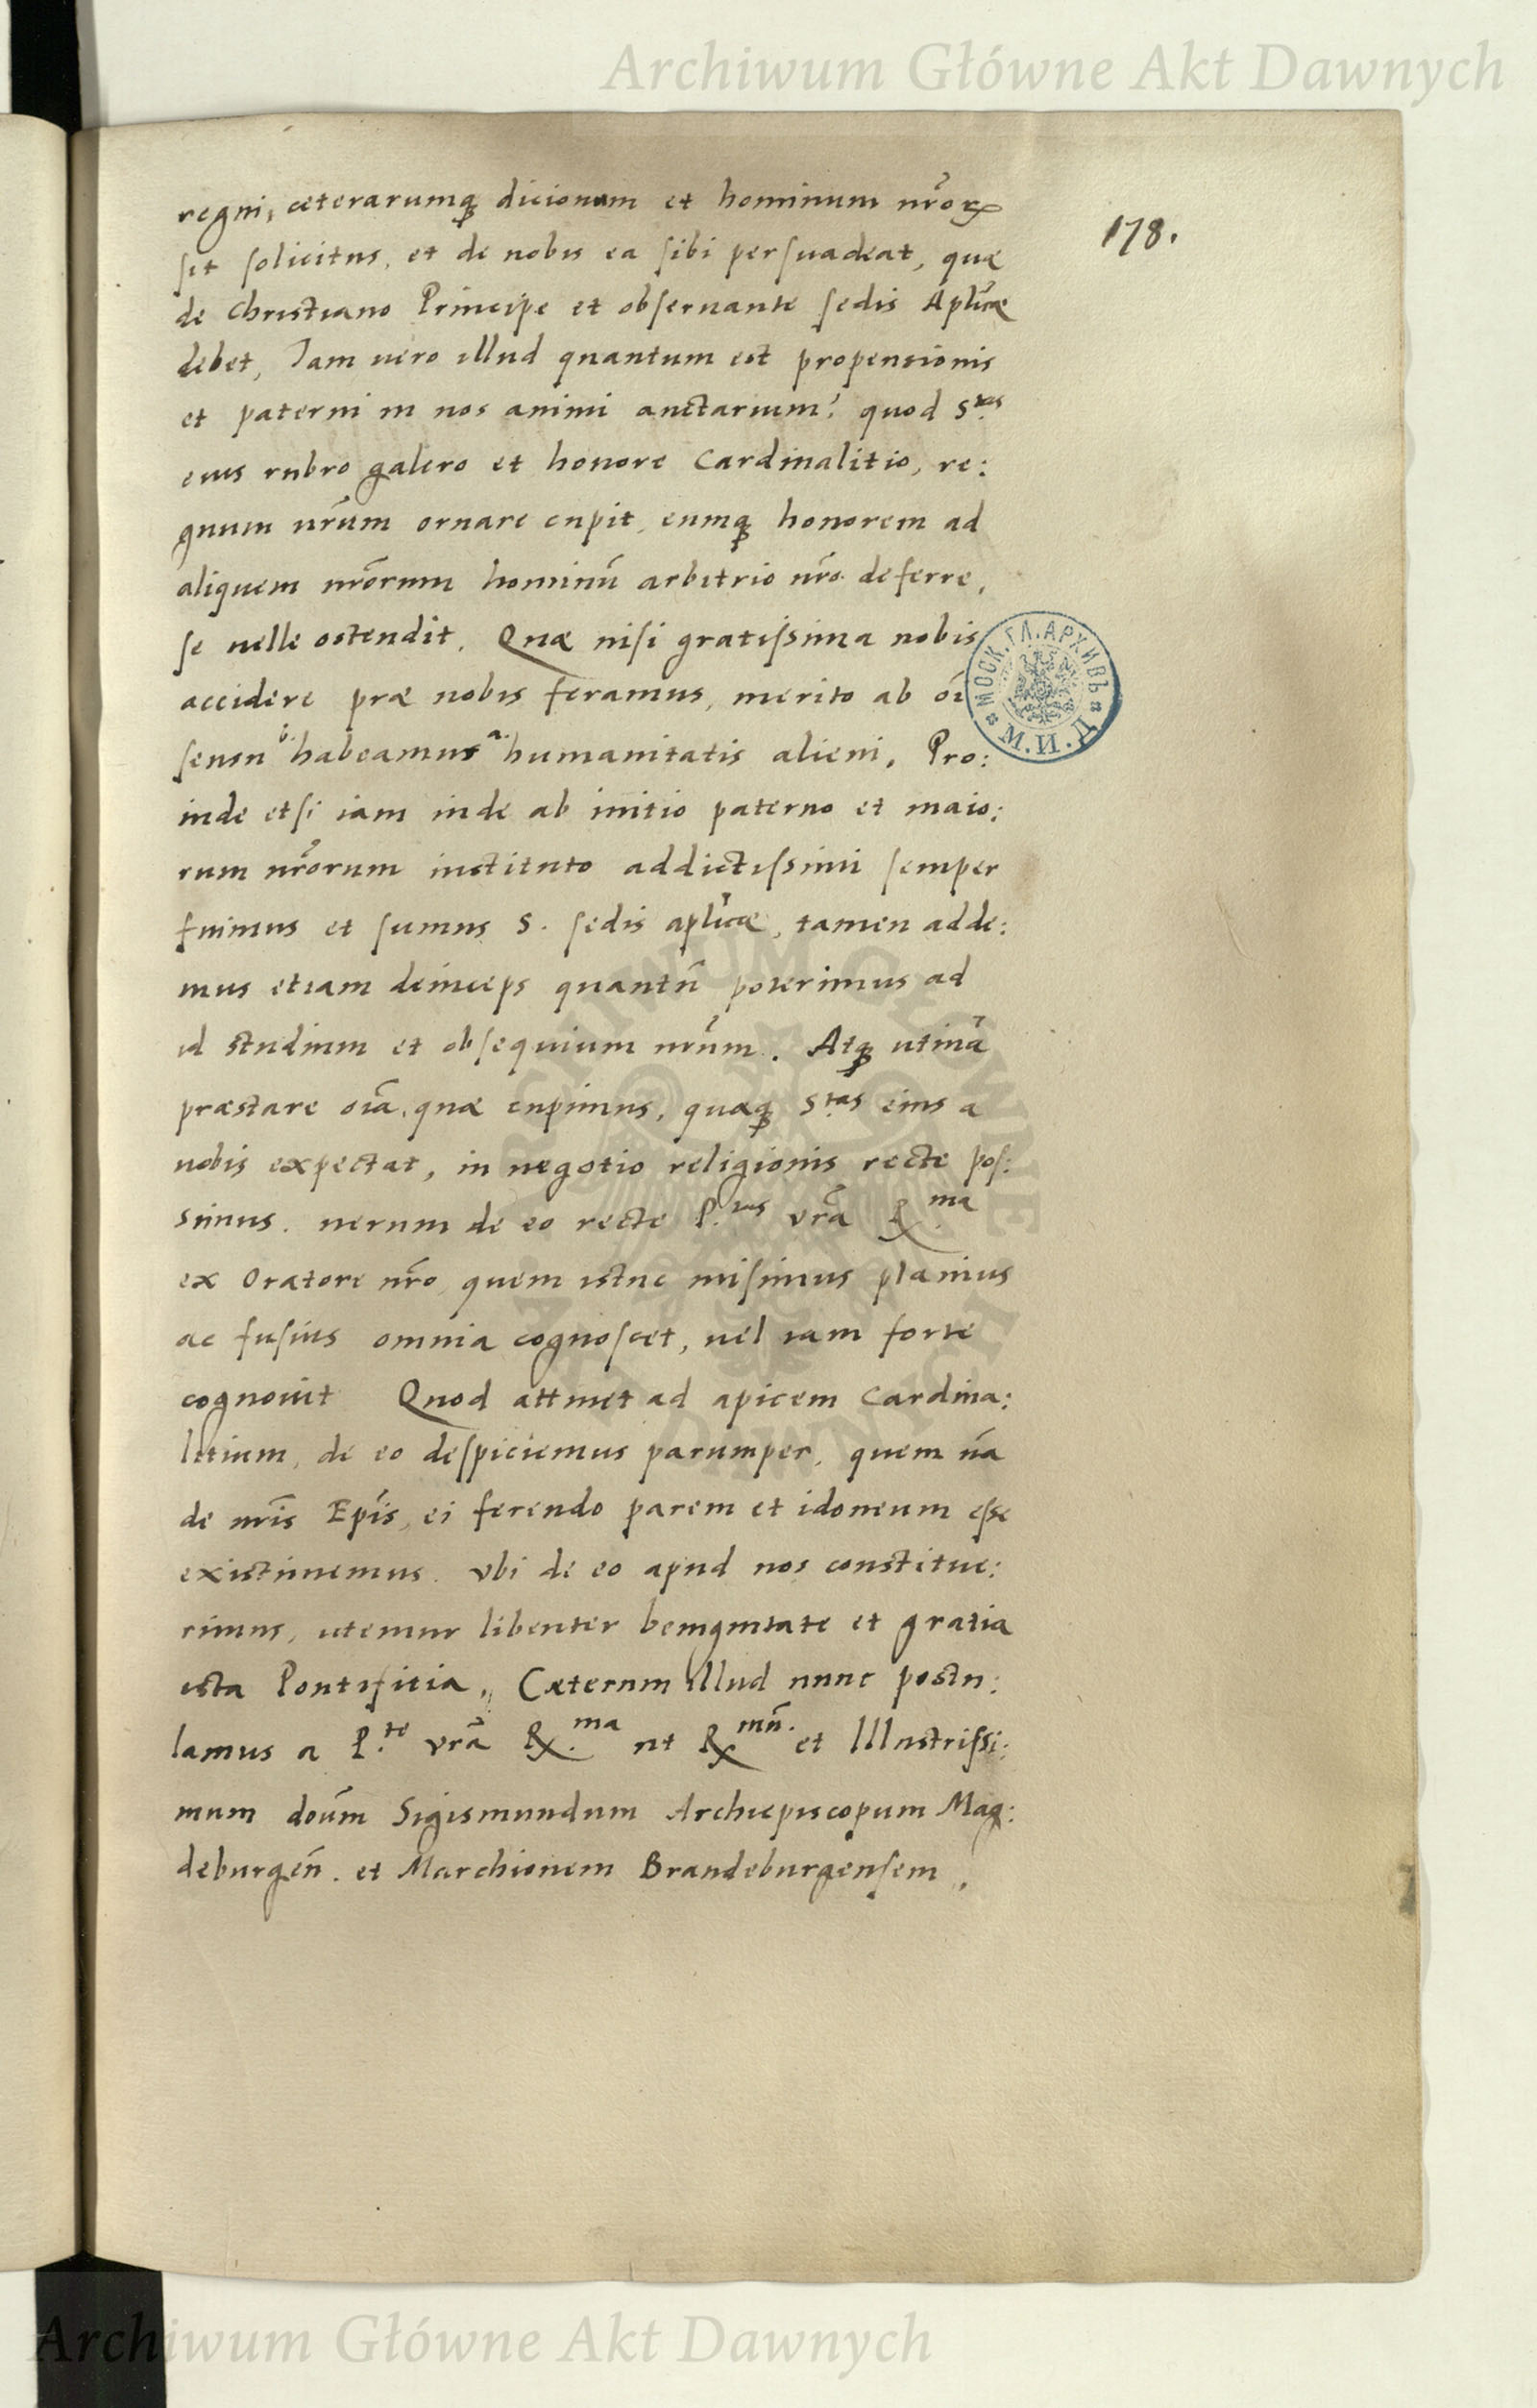 Archiwum Główne Akt Dawnych
178.
regni, cæterarumqꝫ dicionum et hominum nr̃oꝝ
sit solicitus, et de nobis ea sibi persuadeat, quæ
de Christiano Principe et obseruante sedis Apl̃icæ
debet, Iam uero illud quantum est propensionis
et paterni in nos animi auctarium? quod S.tas
eius rubro galero et honore Cardinalitio, re:
gnum nr̃um ornare cupit, eumqꝫ honorem ad
aliquem nr̃orum hominũ arbitrio nr̃o deferre,
se uelle ostendit. Quæ nisi gratissima nobis
accidere præ nobis feramus, merito ab oĩ
sensu b. habeamur a. humanitatis alieni. Pro:
inde etsi iam inde ab initio paterno et maio:
rum nr̃orum instituto addictissimi semper
fuimus et sumus S. sedis apl̃icæ, tamen adde:
mus etiam deinceps quantũ poterimus ad
id studium et obsequium nr̃um. Atqꝫ utinã
præstare oĩa, quæ cupimus, quæqꝫ S.tas eius a
nobis expectat, in negotio religionis recte pos:
simus. uerum de eo recte P.tas vr̃a R.ma
ex Oratore nr̃o, quem istuc misimus planius
ac fusius omnia cognoscet, uel iam forte
cognouit Quod attinet ad apicem Cardina:
litium, de eo despiciemus parumper, quem nã
de nr̃is Ep̃is, ei ferendo parem et idoneum esse
existimemus. Vbi de eo apud nos constitue:
rimus, utemur libenter benignitate et gratia
ista Pontificia. Cæterum illud nunc postu:
lamus a P.te vr̃a R.ma ut R.mũ. et Illustrissi:
mum dom̃ Sigismundum Archiepiscopum Mag:
deburgeñ. et Marchionem Brandeburgensem,
МОСК. ГЛ. АРХИВЪ
М. И. Д.
ARCHIWUM GŁÓWNE AKT DAWNYCH
Archiwum Główne Akt Dawnych